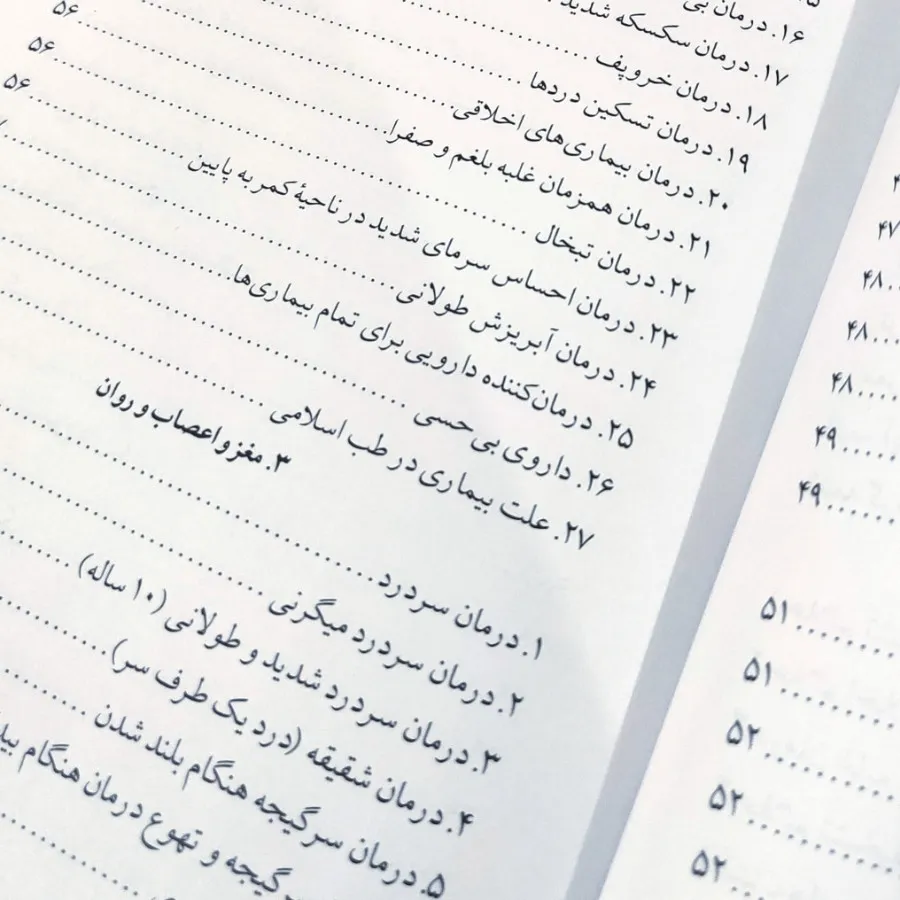 ۱۶. درمان بی
۱۷. درمان سکسکه شدید
۱۸. درمان خروپف
۱۹. درمان تسکین دردها
۲۰. درمان بیماری‌های اخلاقی ........ ۵۶
۲۱. درمان همزمان غلبه بلغم و صفرا ........ ۵۶
۲۲. درمان تبخال ........ ۵۶
۲۳. درمان احساس سرمای شدید در ناحیهٔ کمر به پایین
۲۴. درمان آبریزش طولانی
۲۵. درمان‌کننده دارویی برای تمام بیماری‌ها
۲۶. داروی بی‌حسی
۲۷. علت بیماری در طب اسلامی
۳. مغز و اعصاب و روان
۱. درمان سردرد
۲. درمان سردرد میگرنی
۳. درمان سردرد شدید و طولانی (۱۰ ساله)
۴. درمان شقیقه (درد یک طرف سر)
۵. درمان سرگیجه هنگام بلند شدن
گیجه و تهوع درمان هنگام
۴۷
۴۸
۴۸
۴۸
۴۹
۴۹
۵۱
۵۱
۵۲
۵۲
۵۲